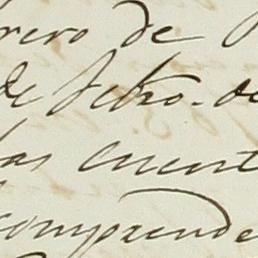 rero de
de Febro. de
las cuent
comprende